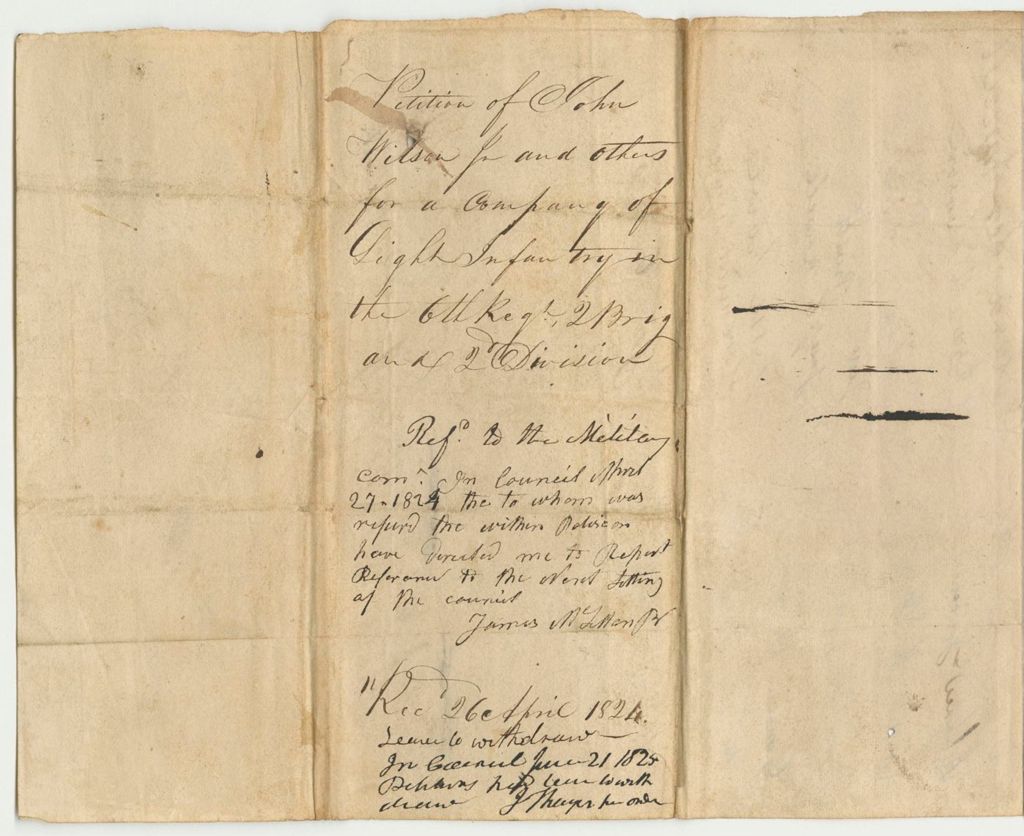 Petition of John
Wilson Jr and others
for a Company of
Light Infantry in
the 6th Regt, 2 Brig
and 2d Division
Refd to the Military
comt. In Council April
27-1824 the to whom was
refurd the within Petision
have directed me to Report
Referance to the Next Sitting
of the council
James
"Recd 26 April 1824.
Leave to withdraw
In Council June 21 1825
Petitions leave to with
draw J Thayer per order